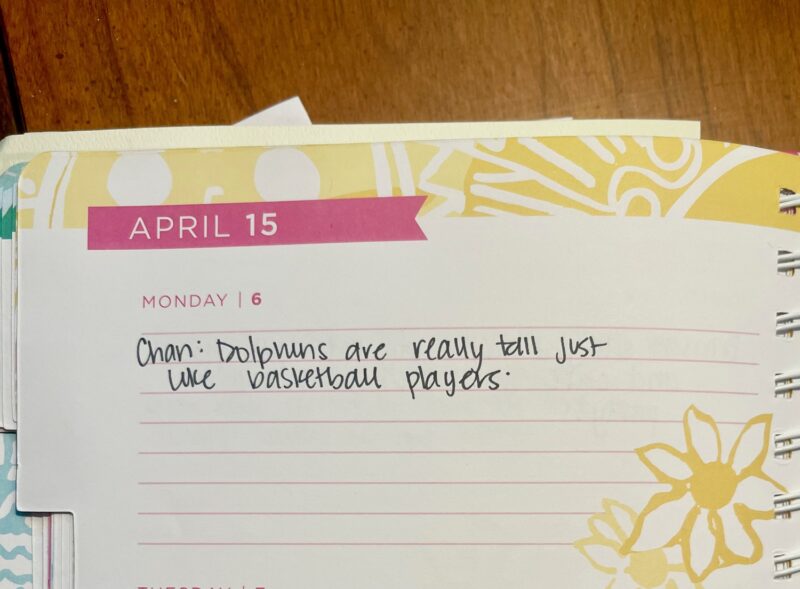 APRIL 15
MONDAY | 6
Chan: Dolphins are really tall just
like basketball players.